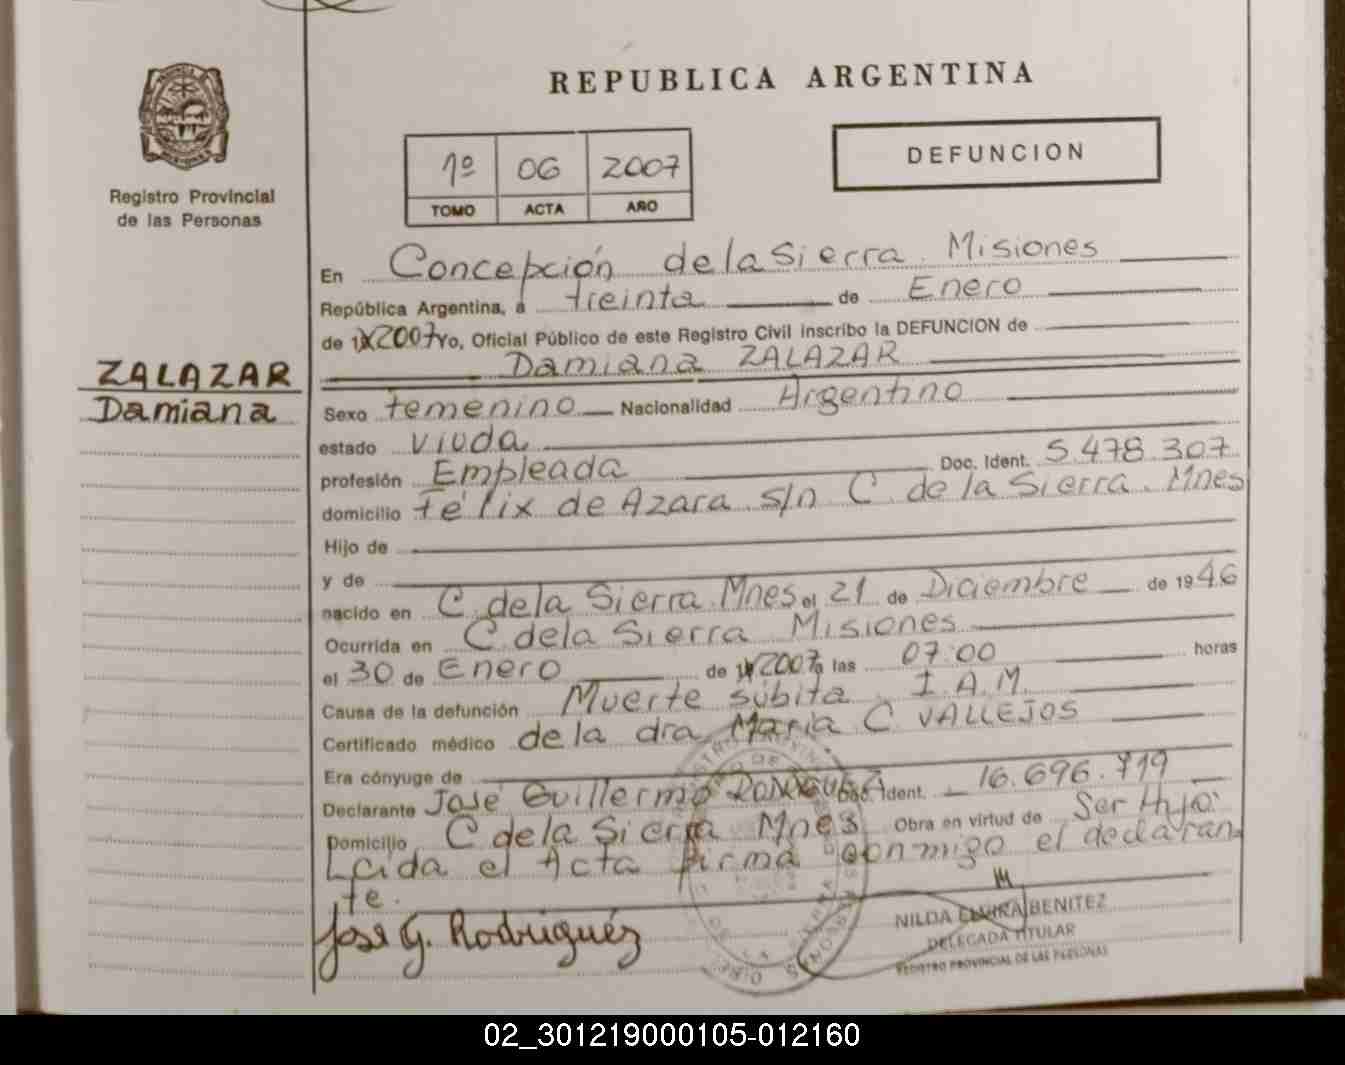 REPUBLICA ARGENTINA
PROVINCIA DE
MISIONES
Registro Provincial
de las Personas
1º 06 2007
TOMO ACTA AÑO
DEFUNCION
ZALAZAR
Damiana
En Concepción de la Sierra. Misiones
República Argentina, a treinta de Enero
de 19 2007 Yo, Oficial Público de este Registro Civil inscribo la DEFUNCION de
Damiana ZALAZAR
Sexo femenino Nacionalidad Argentino
estado viuda
profesión Empleada Doc. Ident. 5.478.307
domicilio Félix de Azara s/n C. de la Sierra. Mnes
Hijo de
y de
nacido en C. de la Sierra. Mnes. el 21 de Diciembre de 1946
Ocurrida en C. de la Sierra Misiones
el 30 de Enero de 19 2007 a las 07:00 horas
Causa de la defunción Muerte súbita. I.A.M.
Certificado médico de la dra María C. VALLEJOS
Era cónyuge de
Declarante José Guillermo RODRIGUEZ Doc. Ident. 16.696.719
Domicilio C. de la Sierra Mnes Obra en virtud de Ser Hijo.
Leída el Acta firma conmigo el declaran
te.
José G. Rodriguéz
NILDA ELVIRA BENITEZ
DELEGADA TITULAR
REGISTRO PROVINCIAL DE LAS PERSONAS
02_301219000105-012160